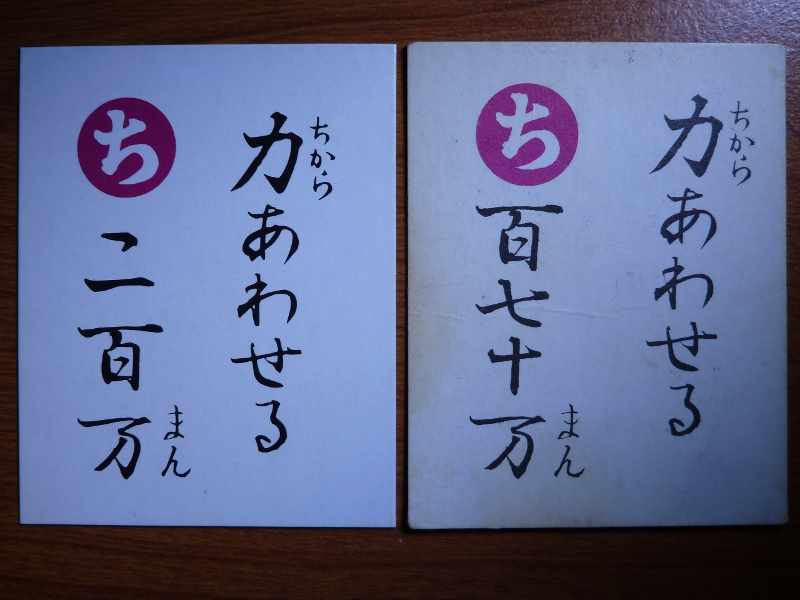 力あわせる
ちから
ち
二百万
まん
力あわせる
ちから
ち
百七十万
まん